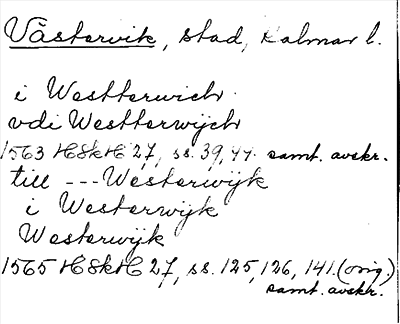 Västervik, stad, Kalmar l.
i Westterwich
vdi Westterwijch
1563 HSkH 27, ss. 39, 44. samt. avskr.
till --- Westerwijk
i Westerwijk
Westerwijk
1565 HSkH 27, ss. 125, 126, 141. (orig.)
samt. avskr.